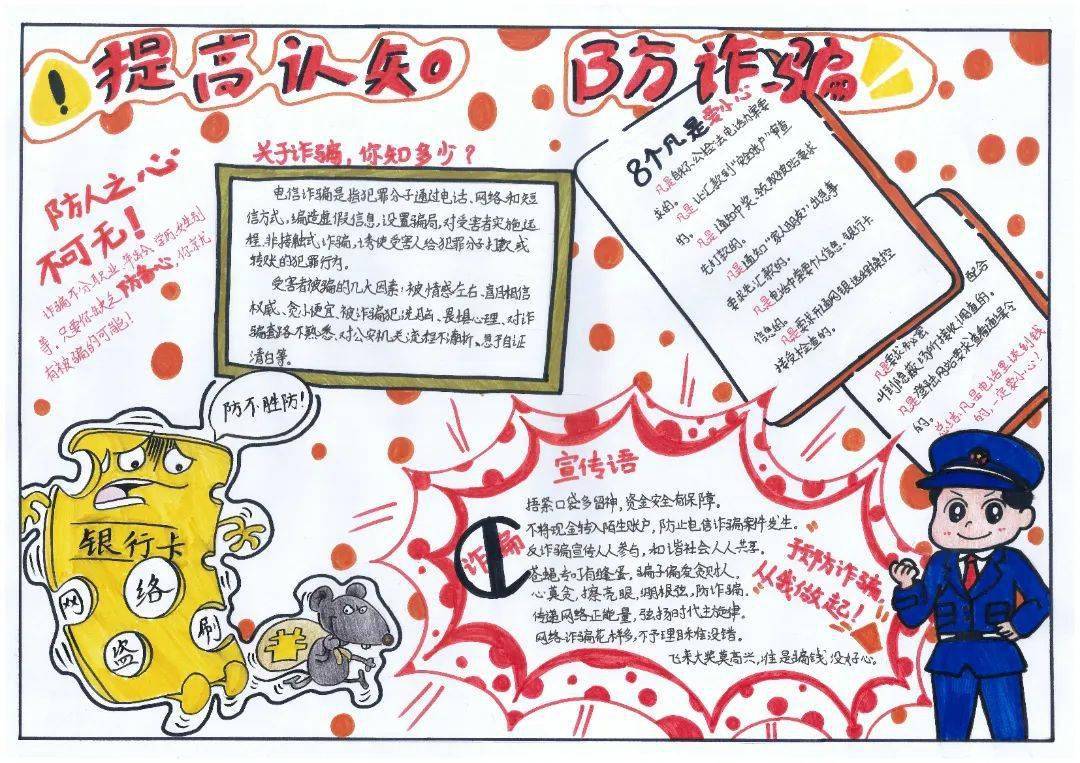 提高认知
防诈骗
防人之心
不可无!
诈骗不分职业、年龄、学历、性别
等,只要你缺乏防备心,你就尤
有被骗的可能!
关于诈骗,你知多少?
电信诈骗是指犯罪分子通过电话、网络和短
信方式,编造虚假信息,设置骗局,对受害者实施远
程、非接触式诈骗,诱使受害人给犯罪分子打款或
转账的犯罪行为。
受害者被骗的几大因素:被情感左右、盲目相信
权威、贪小便宜、被诈骗犯洗脑、畏惧心理、对诈
骗套路不熟悉、对公安机关流程不清晰、急于自证
清白等。
8个凡是要小心
凡是自称公检法电话办案要
求的。凡是让汇款到“安全账户”审查
的。凡是通知中奖、领取被贴要求
先打款的。
凡是通知“家人朋友”出急事
要求先汇款的。
凡是电话中索要个人信息、银行卡
信息的。凡是要求开通网银远程操控
接受检查的。
凡是要求办案 配合
叫到隐蔽场所接收调查的。
凡是登陆网站要求查看通缉令
的。
总结:凡是电话里谈到钱
的,一定要小心!
防不胜防!
银行卡
网
络
盗
刷
诈骗
宣传语
捂紧口袋多留神,资金安全有保障。
不将现金转入陌生账户,防止电信诈骗案件发生。
反诈骗宣传人人参与,和谐社会人人共享。
苍蝇专叮有缝蛋,骗子偏爱贪财人。
心莫贪,擦亮眼,绷根弦,防诈骗。
传递网络正能量,弘扬时代主旋律。
网络诈骗花样多,不予理睬准没错。
飞来大奖莫高兴,谁是骗钱没好心。
预防诈骗,
从我做起!